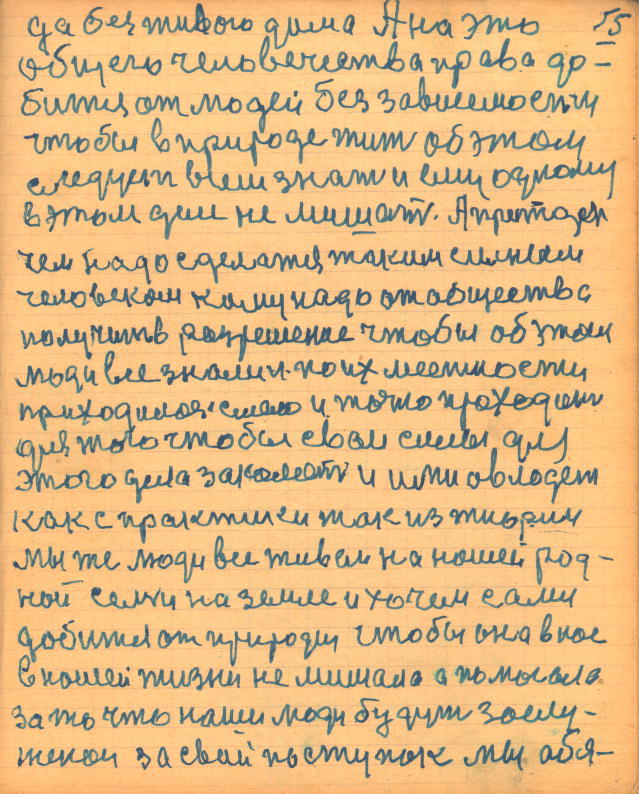 да без живого дима А на это 55
общего человечества права до-
битця от людей без зависемости
чтобы в природе жит об этом
следует всем знат и ему одному
в этом деле не мишат. А прежде
чем надо сделатця таким сильным
человеком кому надо от общества
получить разрешение чтобы об этом
люди все знали и по их местности
приходилось смело и точно проходит
для того чтобы свои силы для
этого дела закалят и ими овлодет
как с практики так из тиории
мы же люди все живем на нашей род-
ной семи на земле и хочем сами
добитця от природы чтобы она в нас
в нашей жизни не мишала а помогала
за то что наши люди будут заслу-
жоной за свай поступок мы обя-